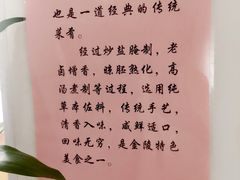 也是一道经典的传统
菜肴。
经过炒盐腌制,老
卤增香,晾胚熟化,高
汤煮制等过程,选用纯
草本佐料,传统手艺,
清香入味,咸鲜适口,
回味无穷,是金陵特色
美食之一。